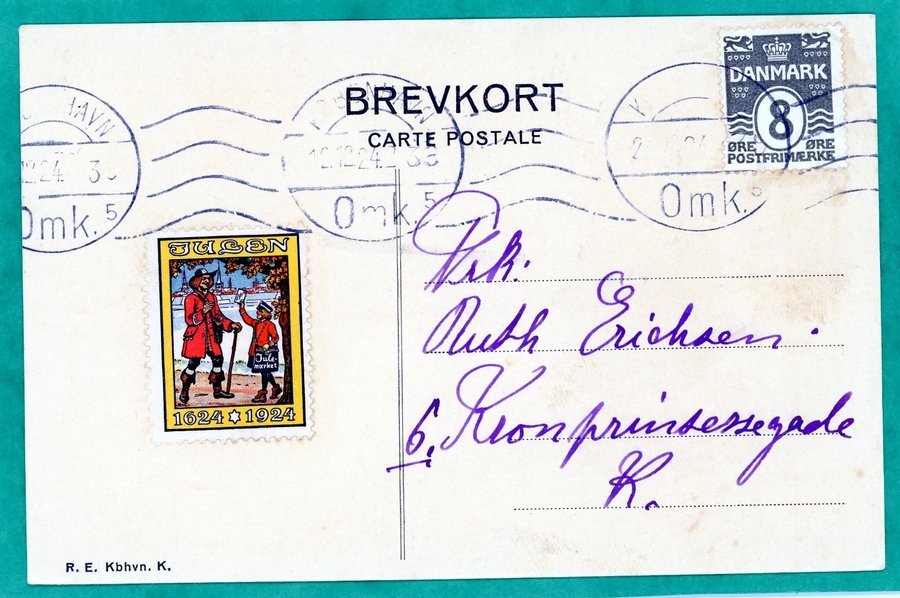 BREVKORT
CARTE POSTALE
DANMARK
8
ØRE ØRE
POSTFRIMÆRKE
HAVN
12.24 3
Omk. 5
12.12.24
Omk. 5
K
24
Omk.
JULEN
Jule-
mærket
1624 1924
Frk.
Ruth Erichsen.
6. Kronprinsessegade
K.
R. E. Kbhvn. K.